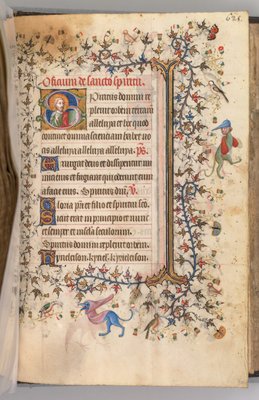 Officium de sancto spiritu.
Spiritus domini re
pleuit orbem terrarum
alleluya et hoc quod
continet omnia scienciam habet uo
cis alleluya alleluya alleluya. ps
Exurgat deus et dissipentur ini
mici eius et fugiant qui oderunt eum
a facie eius. Spiritus dni. V
Gloria patri et filio et spiritui sco
Sicut erat in principio et nunc
et semper et in secula seculorum.
Spiritus domini repleuit orbem.
Kyrieleison. kyriel. kyrieleison.